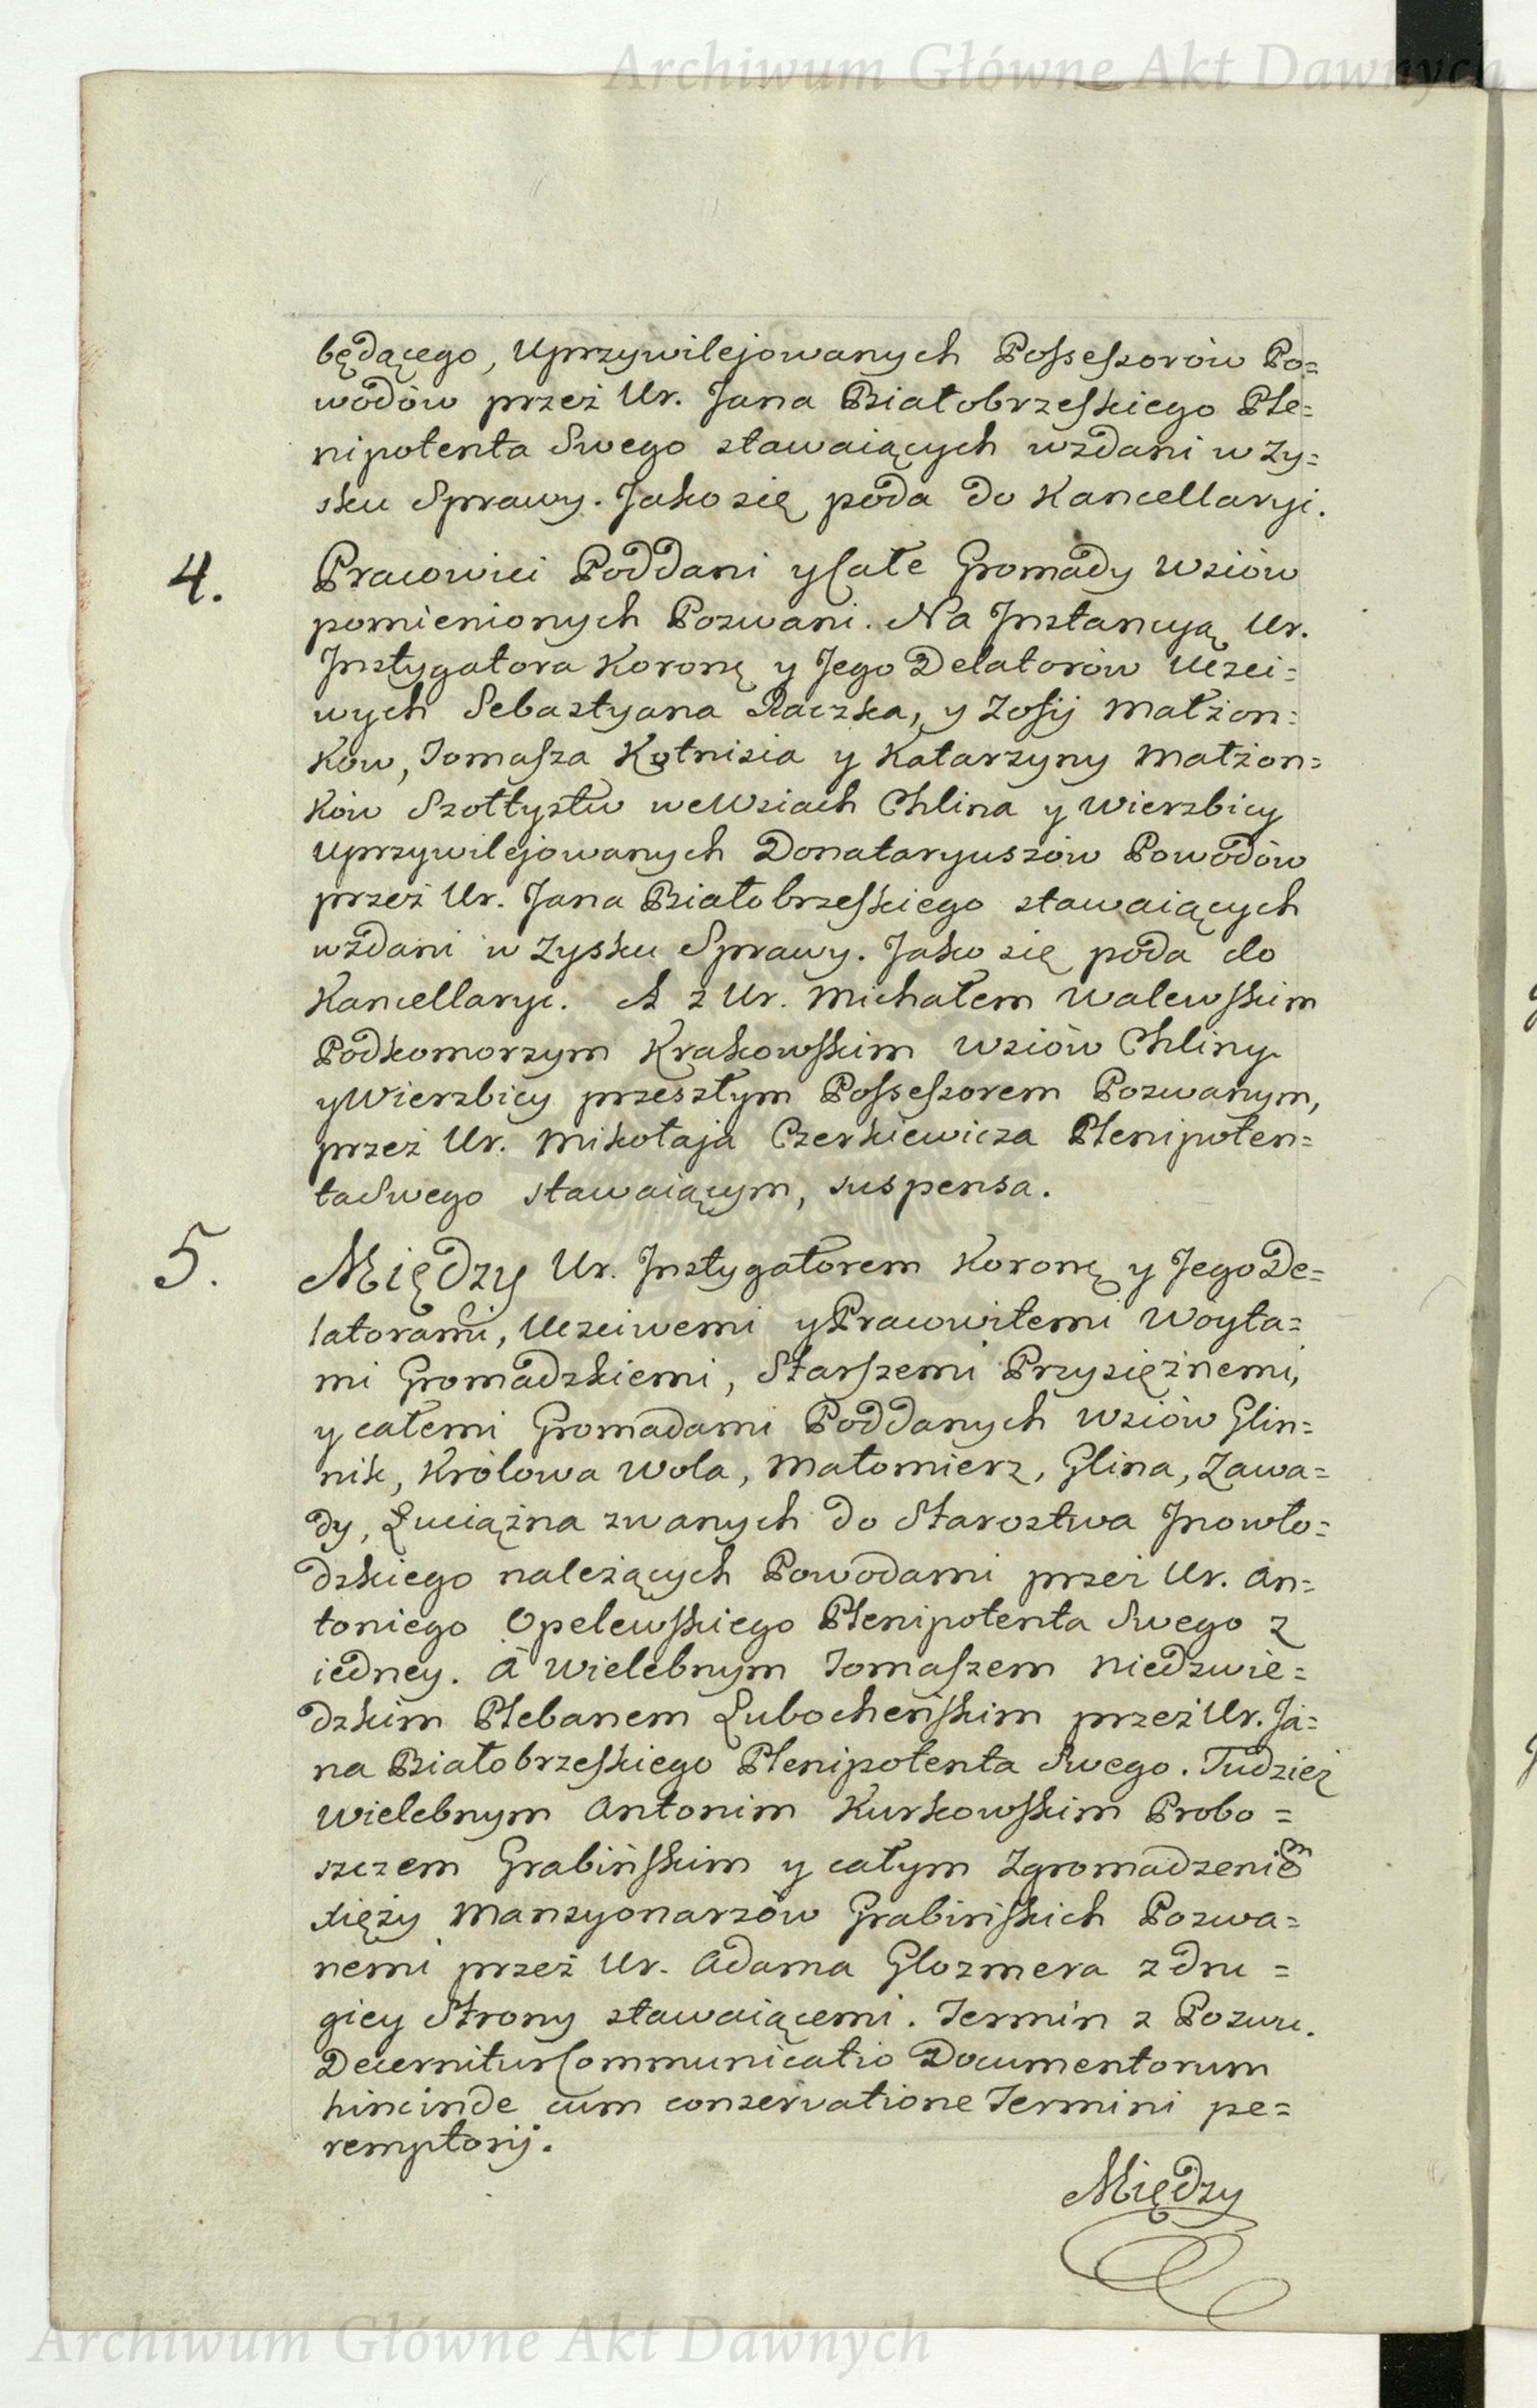 Archiwum Główne Akt Dawnych
będącego, Uprzywilejowanych Possessorów Po=
wodów przez Ur. Jana Białobrzeskiego Ple=
nipotenta Swego stawaiących wzdani w zy=
sku Sprawy. Jako się poda do Kancellaryi.
4. Pracowici Poddani y Całe Gromady Wsiów
pomienionych Pozwani. Na Instancyą Ur.
Instygatora Koronę y Jego Delatorów Uczci=
wych Sebastyana Raczka, y Zofij Małżon=
ków, Tomasza Kotnisia y Katarzyny Małżon=
ków Szołtystw we Wsiach Chlina y Wierzbicy
Uprzywilejowanych Donataryuszów Powodów
przez Ur. Jana Białobrzeskiego stawaiących
wzdani w zysku Sprawy. Jako się poda do
Kancellaryi. A z Ur. Michałem Walewskim
Podkomorzym Krakowskim Wsiów Chliny
y Wierzbicy przeszłym Possessorem Pozwanym,
przez Ur. Mikołaja Czerkiewicza Plenipoten=
ta Swego stawaiącym, suspensa.
5. Między Ur. Instygatorem Koronę y Jego De=
latorami, Uczciwemi y Pracowitemi Woyta=
mi Gromadzkiemi, Starszemi Przysiężnemi,
y całemi Gromadami Poddanych Wsiów Glin=
nik, Królowa Wola, Małomierz, Glina, Zawa=
dy, Luciążna zwanych do Starostwa Jnowło=
dzkiego należących Powodami przez Ur. An=
toniego Opelewskiego Plenipotenta Swego z
iedney. A Wielebnym Tomaszem Niedzwie=
dzkim Plebanem Lubocheńskim przez Ur. Ja=
na Białobrzeskiego Plenipotenta Swego. Tudzież
Wielebnym Antonim Kurkowskim Probo=
szczem Grabińskim y całym Zgromadzeniem
xięży Mansyonarzów Grabińskich Pozwa=
nemi przez Ur. Adama Glozmera z dru=
giey Strony stawaiącemi. Termin z Pozwu.
Decernitur Communicatio Documentorum
hincinde cum conservatione Termini pe=
remptorij.
Między
Archiwum Główne Akt Dawnych